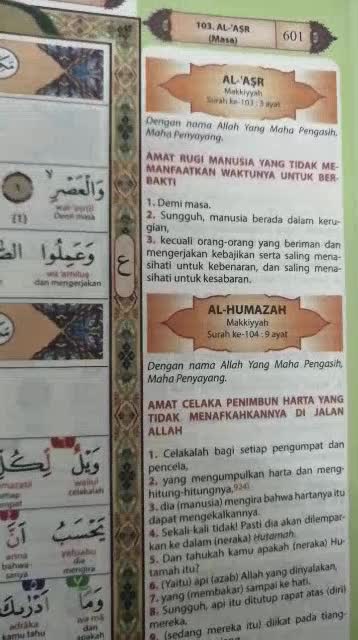 103. AL-'AṢR
(Masa)
601
AL-'AṢR
Makkiyyah
Surah ke-103 : 3 ayat
Dengan nama Allah Yang Maha Pengasih,
Maha Penyayang.
AMAT RUGI MANUSIA YANG TIDAK ME-
MANFAATKAN WAKTUNYA UNTUK BER-
BAKTI
1. Demi masa.
2. Sungguh, manusia berada dalam keru-
gian,
3. kecuali orang-orang yang beriman dan
mengerjakan kebajikan serta saling mena-
sihati untuk kebenaran, dan saling mena-
sihati untuk kesabaran.
AL-HUMAZAH
Makkiyyah
Surah ke-104 : 9 ayat
Dengan nama Allah Yang Maha Pengasih,
Maha Penyayang.
AMAT CELAKA PENIMBUN HARTA YANG
TIDAK MENAFKAHKANNYA DI JALAN
ALLAH
1. Celakalah bagi setiap pengumpat dan
pencela,
2. yang mengumpulkan harta dan meng-
hitung-hitungnya,
3. dia (manusia) mengira bahwa hartanya itu
dapat mengekalkannya.
4. Sekali-kali tidak! Pasti dia akan dilempar-
kan ke dalam (neraka) Hutamah.
5. Dan tahukah kamu apakah (neraka) Hu-
tamah itu?
6. (Yaitu) api (azab) Allah yang dinyalakan,
7. yang (membakar) sampai ke hati.
8. Sungguh, api itu ditutup rapat atas (diri)
mereka,
9. (sedang mereka itu) diikat pada tiang-
وَالْعَصْرِ
(1)
Demi masa
وَعَمِلُوا
wa 'amiluṣ
dan mengerjakan
ع
وَيْلٌ
wailul
celakalah
يَحْسَبُ
yaḥsabu
dia
mengira
أَنَّ
anna
bahwa
sanya
وَمَا
wa mā
dan
apakah
أَدْرَىكَ
adrāka
kamu tahu